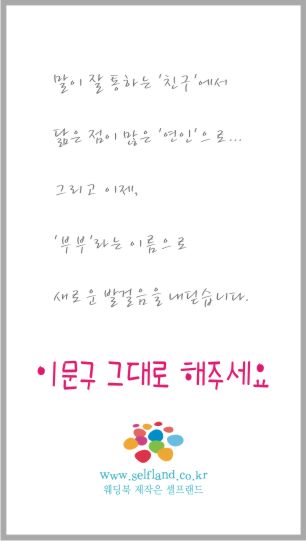 말이 잘 통하는 '친구'에서
닮은 점이 많은 '연인'으로...
그리고 이제,
'부부'라는 이름으로
새로운 발걸음을 내딛습니다.
이문구 그대로 해주세요
www.selfland.co.kr
웨딩북 제작은 셀프랜드